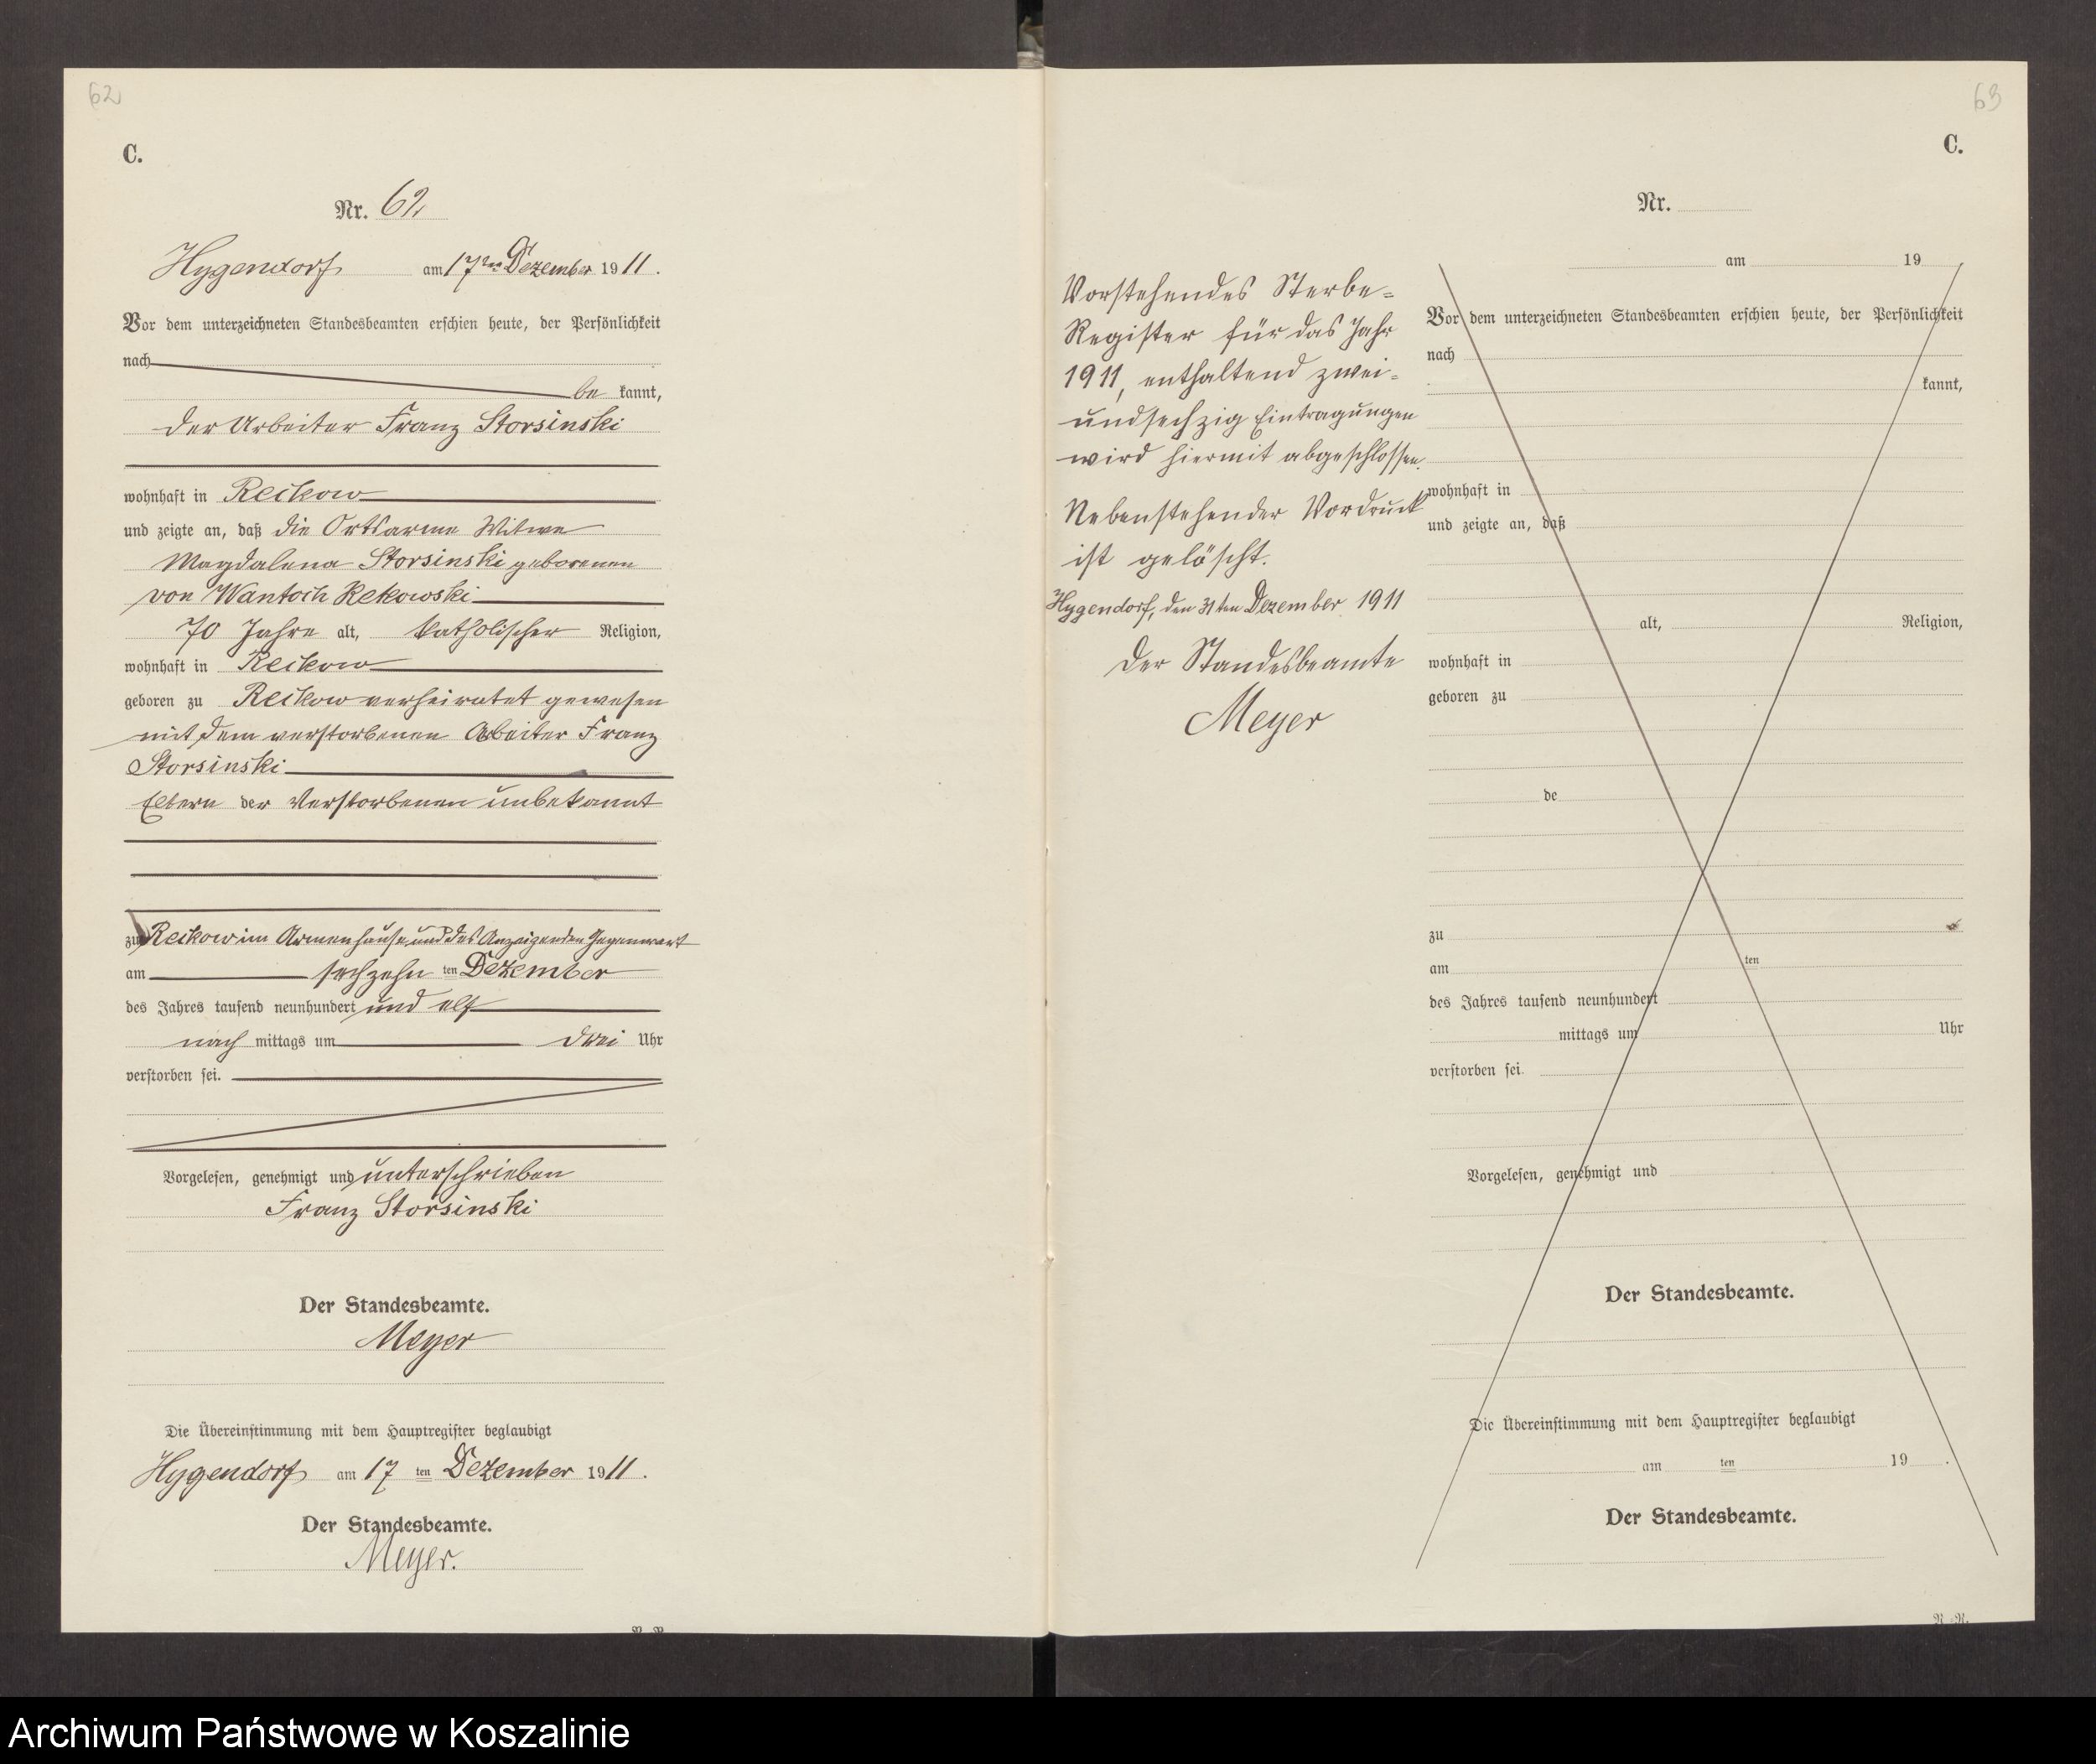 62
C.
Nr. 62
Hygendorf am 17ten Dezember 1911.
Vor dem unterzeichneten Standesbeamten erschien heute, der Persönlichkeit
nach
be kannt,
der Arbeiter Franz Storsinski
wohnhaft in Reckow
und zeigte an, daß die Ortsarme Witwe
Magdalena Storsinski geborenen
von Wantoch Rekowski
70 Jahre alt, katholischer Religion,
wohnhaft in Reckow
geboren zu Reckow verheiratet gewesen
mit dem verstorbenen Arbeiter Franz
Storsinski
Eltern der Verstorbenen unbekannt
zu Reckow im Armenhause und des Anzeigenden Gegenwart
am sechzehn ten Dezember
des Jahres tausend neunhundert und elf
nach mittags um drei Uhr
verstorben sei.
Vorgelesen, genehmigt und unterschrieben
Franz Storsinski
Der Standesbeamte.
Meyer
Die Übereinstimmung mit dem Hauptregister beglaubigt
Hygendorf am 17 ten Dezember 1911.
Der Standesbeamte.
Meyer.
63
C.
Vorstehendes Sterbe=
Register für das Jahr
1911, enthaltend zwei=
undsechzig Eintragungen
wird hiermit abgeschlossen.
Nebenstehender Vordruck
ist gelöscht.
Hygendorf, den 31ten Dezember 1911
Der Standesbeamte
Meyer
Nr.
am 19
Vor dem unterzeichneten Standesbeamten erschien heute, der Persönlichkeit
nach
kannt,
wohnhaft in
und zeigte an, daß
alt, Religion,
wohnhaft in
geboren zu
de
zu
am ten
des Jahres tausend neunhundert
mittags um Uhr
verstorben sei.
Vorgelesen, genehmigt und
Der Standesbeamte.
Die Übereinstimmung mit dem Hauptregister beglaubigt
am ten 19 .
Der Standesbeamte.
Archiwum Państwowe w Koszalinie